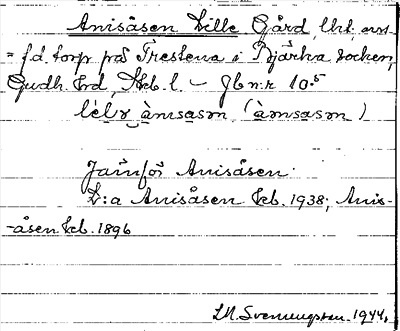 Anisåsen Lille Gård, lht, avs-
= f.d. torp på Trestena i Bjärka socken,
Gudh. hd, Skb. l. – Jb n:r 10.5
lèlɤ ànɩsåsən (ànɩsåsən)
Jämför Anisåsen.
L:a Anisåsen Kb. 1938; Anis-
-åsen kb. 1896
L.M. Svenungsson. 1944.